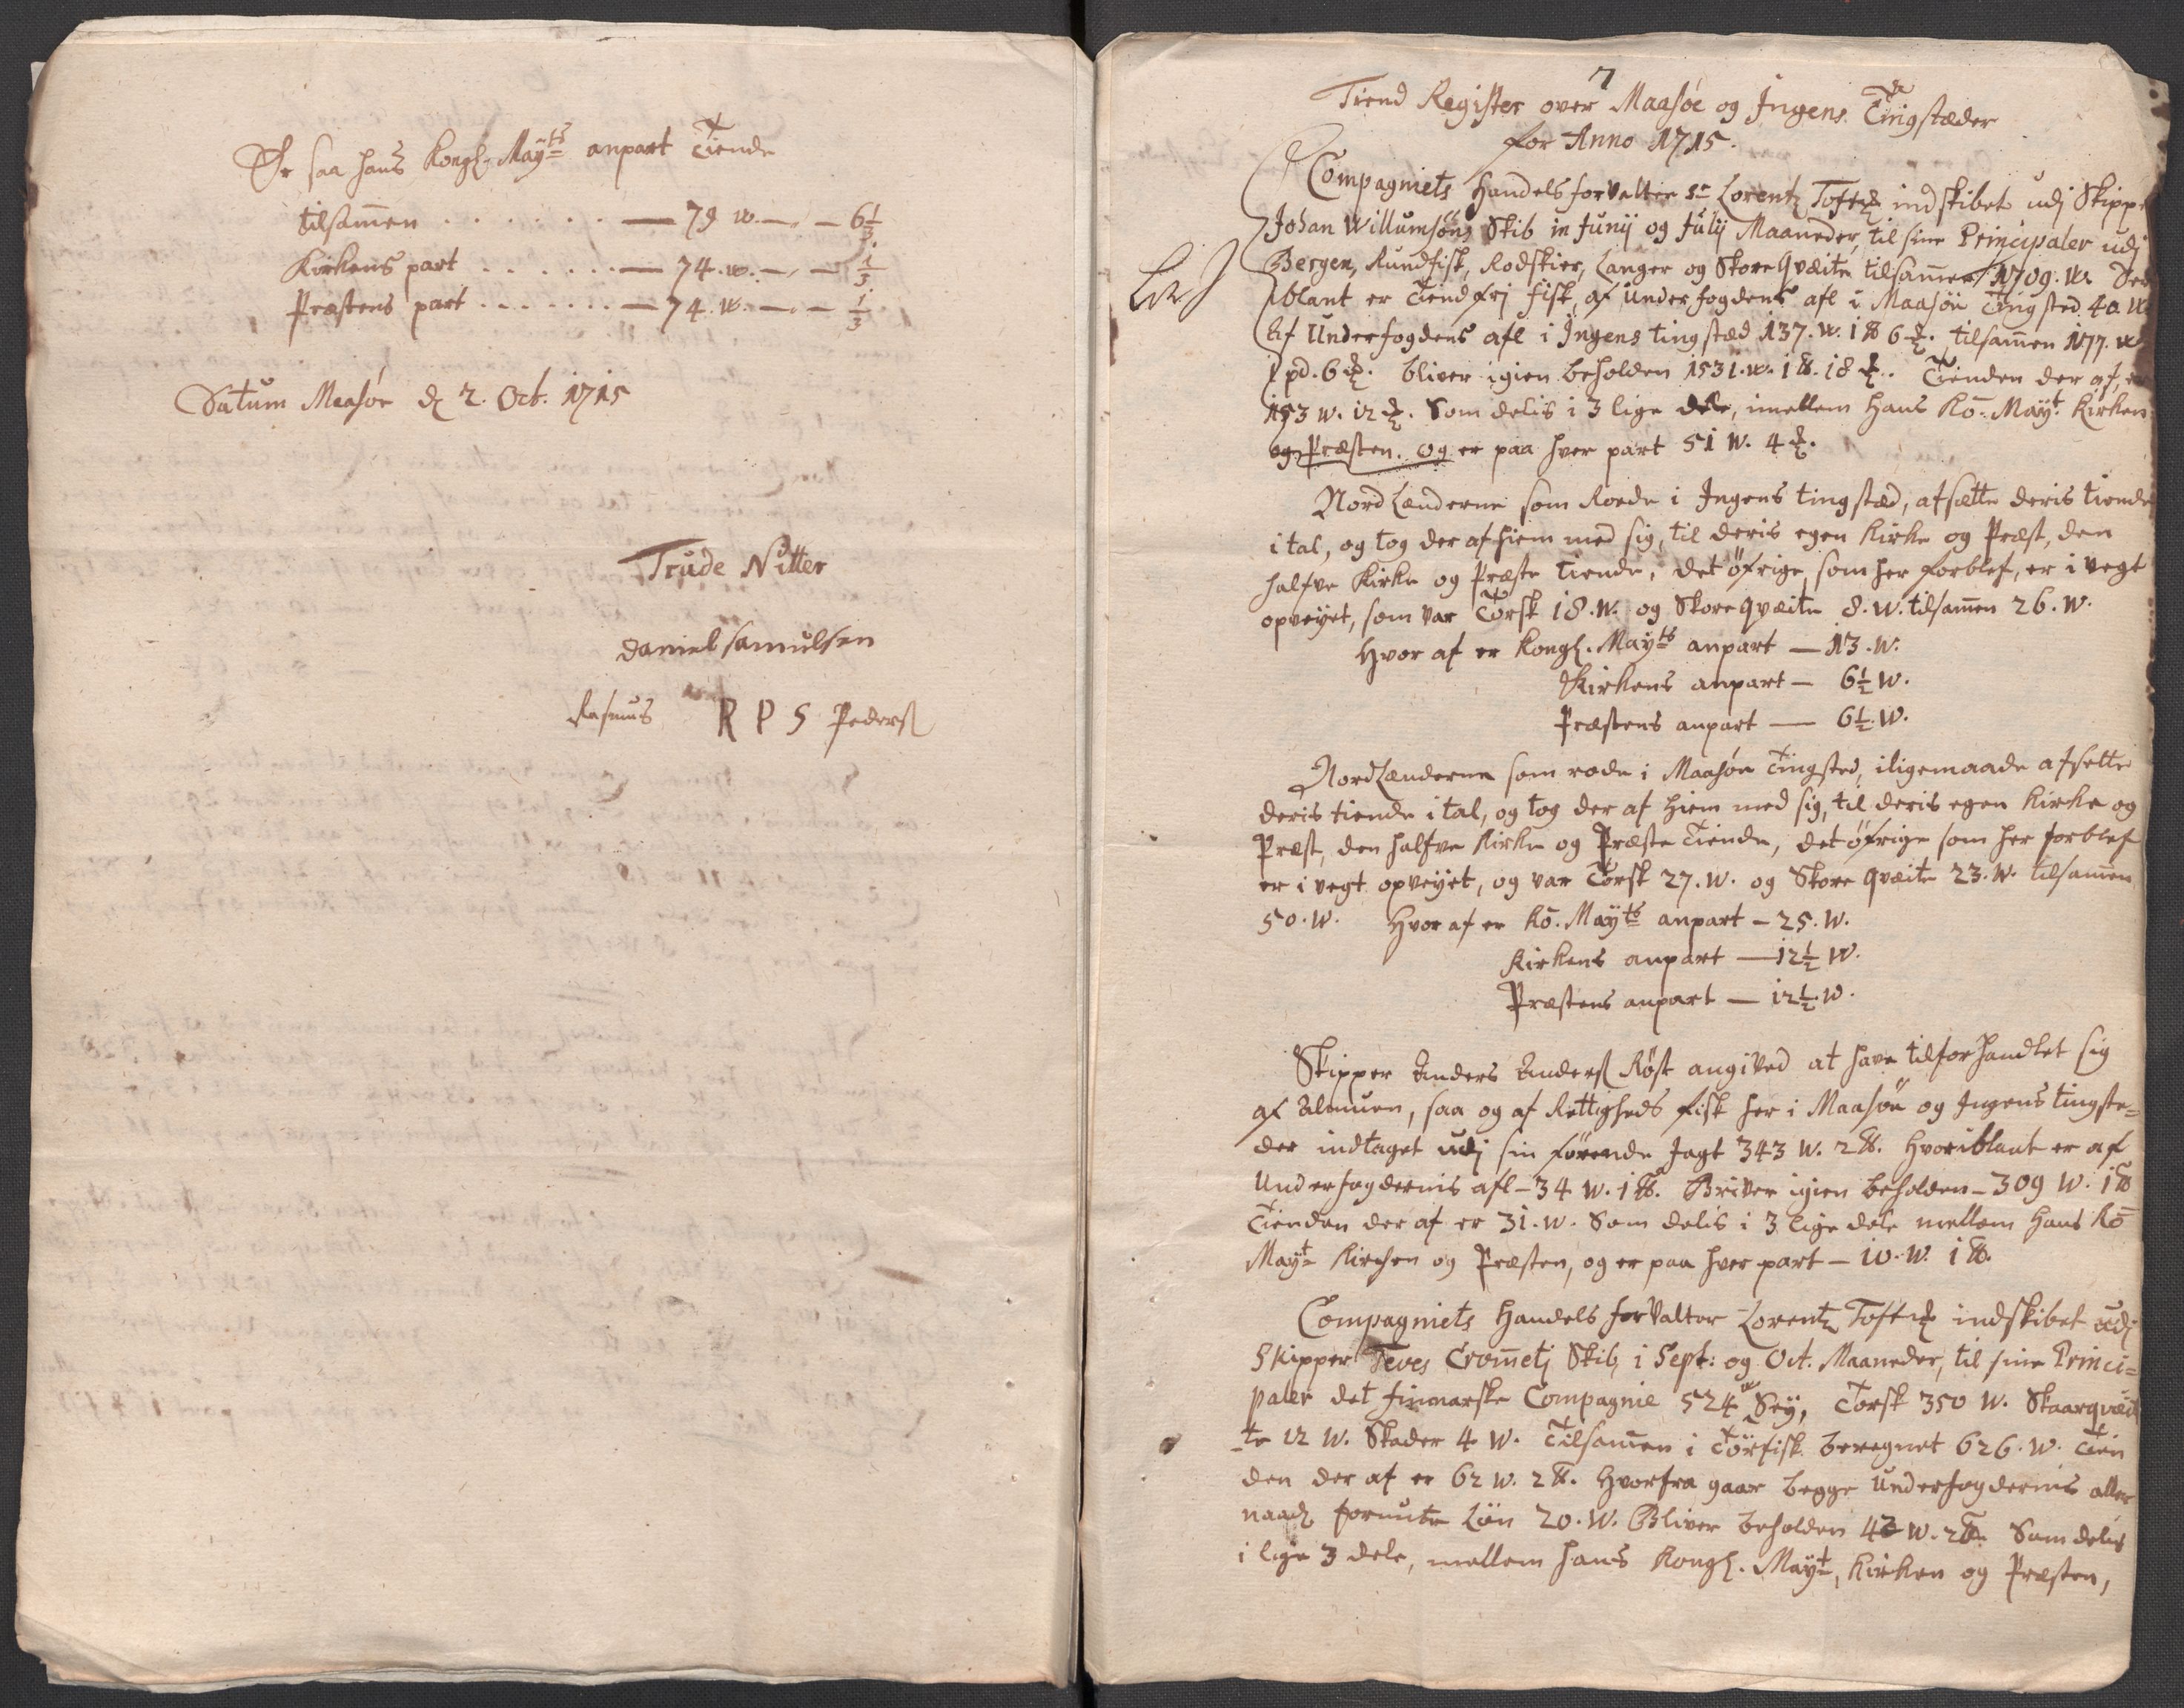 Er saa hans Kongl. Mayts anpart Tiende
tilsamen . . . . . . — 79 w. — „ — 6 1/3
Kirkens part . . . . . . — 74. w. — „ — 1/3
Præstens part . . . . . . — 74. w. — „ — 1/3
Datum Maasøe d 2. Oct. 1715
Trude Nitter
Daniel Samulsen
Rasmus R P S Peders
7
Tiend Register over Maasøe og Ingens Tingstæder
for Anno 1715.
Compagniets Handels forvalter Sr Lorentz Toft indskibet udj Skipp
Johan Willumsøns Skib in Junij og Julij Maaneder, til sine Principaler udj
Bergen, Rundfisk, Rodskier, Langer og Skoreqvæite tilsamen 1709. w. Der
iblant er Tiendfrj fisk, af Underfogdens afl i Maasøe Tingsted 40 w
Af Underfogdens afl i Ingens tingstæd 137. w. 1 6. tilsamen 177. w
1 pd. 6. bliver igien beholden 1531. w. 1. 18. Tienden der af, er
153 w. 12. Som delis i 3 lige dele, imellem Hans Ko: Mayt. Kirken
og Præsten. Og er paa hver part 51 W. 4.
Nordlænderne som Roede i Ingens tingstæd, afsætte deris tiende
i tal, og tog der af hiem med sig, til deris egen Kirke og Præst, den
halfve Kirke og Præste tiende, det öfrige, som her forblef, er i vegt
opveyet, som var Torsk 18. W. og Skoreqvæite 8. W. tilsamen 26. W.
Hvor af er Kongl. Mayts anpart — 13. W.
Kirkens anpart — 6 1/2 W.
Præstens anpart — 6 1/2. W.
Nordlænderne som roede i Maasøe Tingsted, iligemaade afsette
deris tiende i tal, og tog der af hiem med sig, til deris egen Kirke og
Præst, den halfve Kirke og Præste Tiende, det öfrige som her forblef
er i vegt opveyet, og var Torsk 27. W. og Skore qvæite 23. W. tilsamen
50. W. Hvor af er Ko. Mayts anpart — 25. W.
Kirkens anpart — 12 1/2 W.
Præstens anpart — 12 1/2. W.
Skipper Anders Anders Röst angived at have tilforhandlet sig
af Almuen, saa og af Rettigheds fisk her i Maasøe og Ingens tingste=
der indtaget udj sin förende Jagt 343 W. 2. Hvoriblant er af
Underfogdernis afl — 34 W. 1. Briver igien beholden — 309 W. 1
Tienden der af er 31. W. Som delis i 3 lige dele mellem Hans Ko
Mayt Kirchen og Præsten, og er paa hver part — 10. W. 1.
Compagniets Handels forvalter Lorentz Toft indskibet udj
Skipper Teves Crometj Skib, i Sept: og Oct. Maaneder, til sine Princi=
paler det finmarske Compagnie 524 w Sey, Torsk 350 W. Skaarqvæi
te 12 W. Skader 4 W. Tilsamen i Törfisk beregnet 626. W. Tien
den der af er 62 W. 2. Hvorfra gaar begge Underfogdernis aller
naad forunte Lön 20. W. Bliver beholden 42 W. 2 Som delis
i lige 3 dele, mellem Hans Kongl. Mayt, Kirken og Præsten,